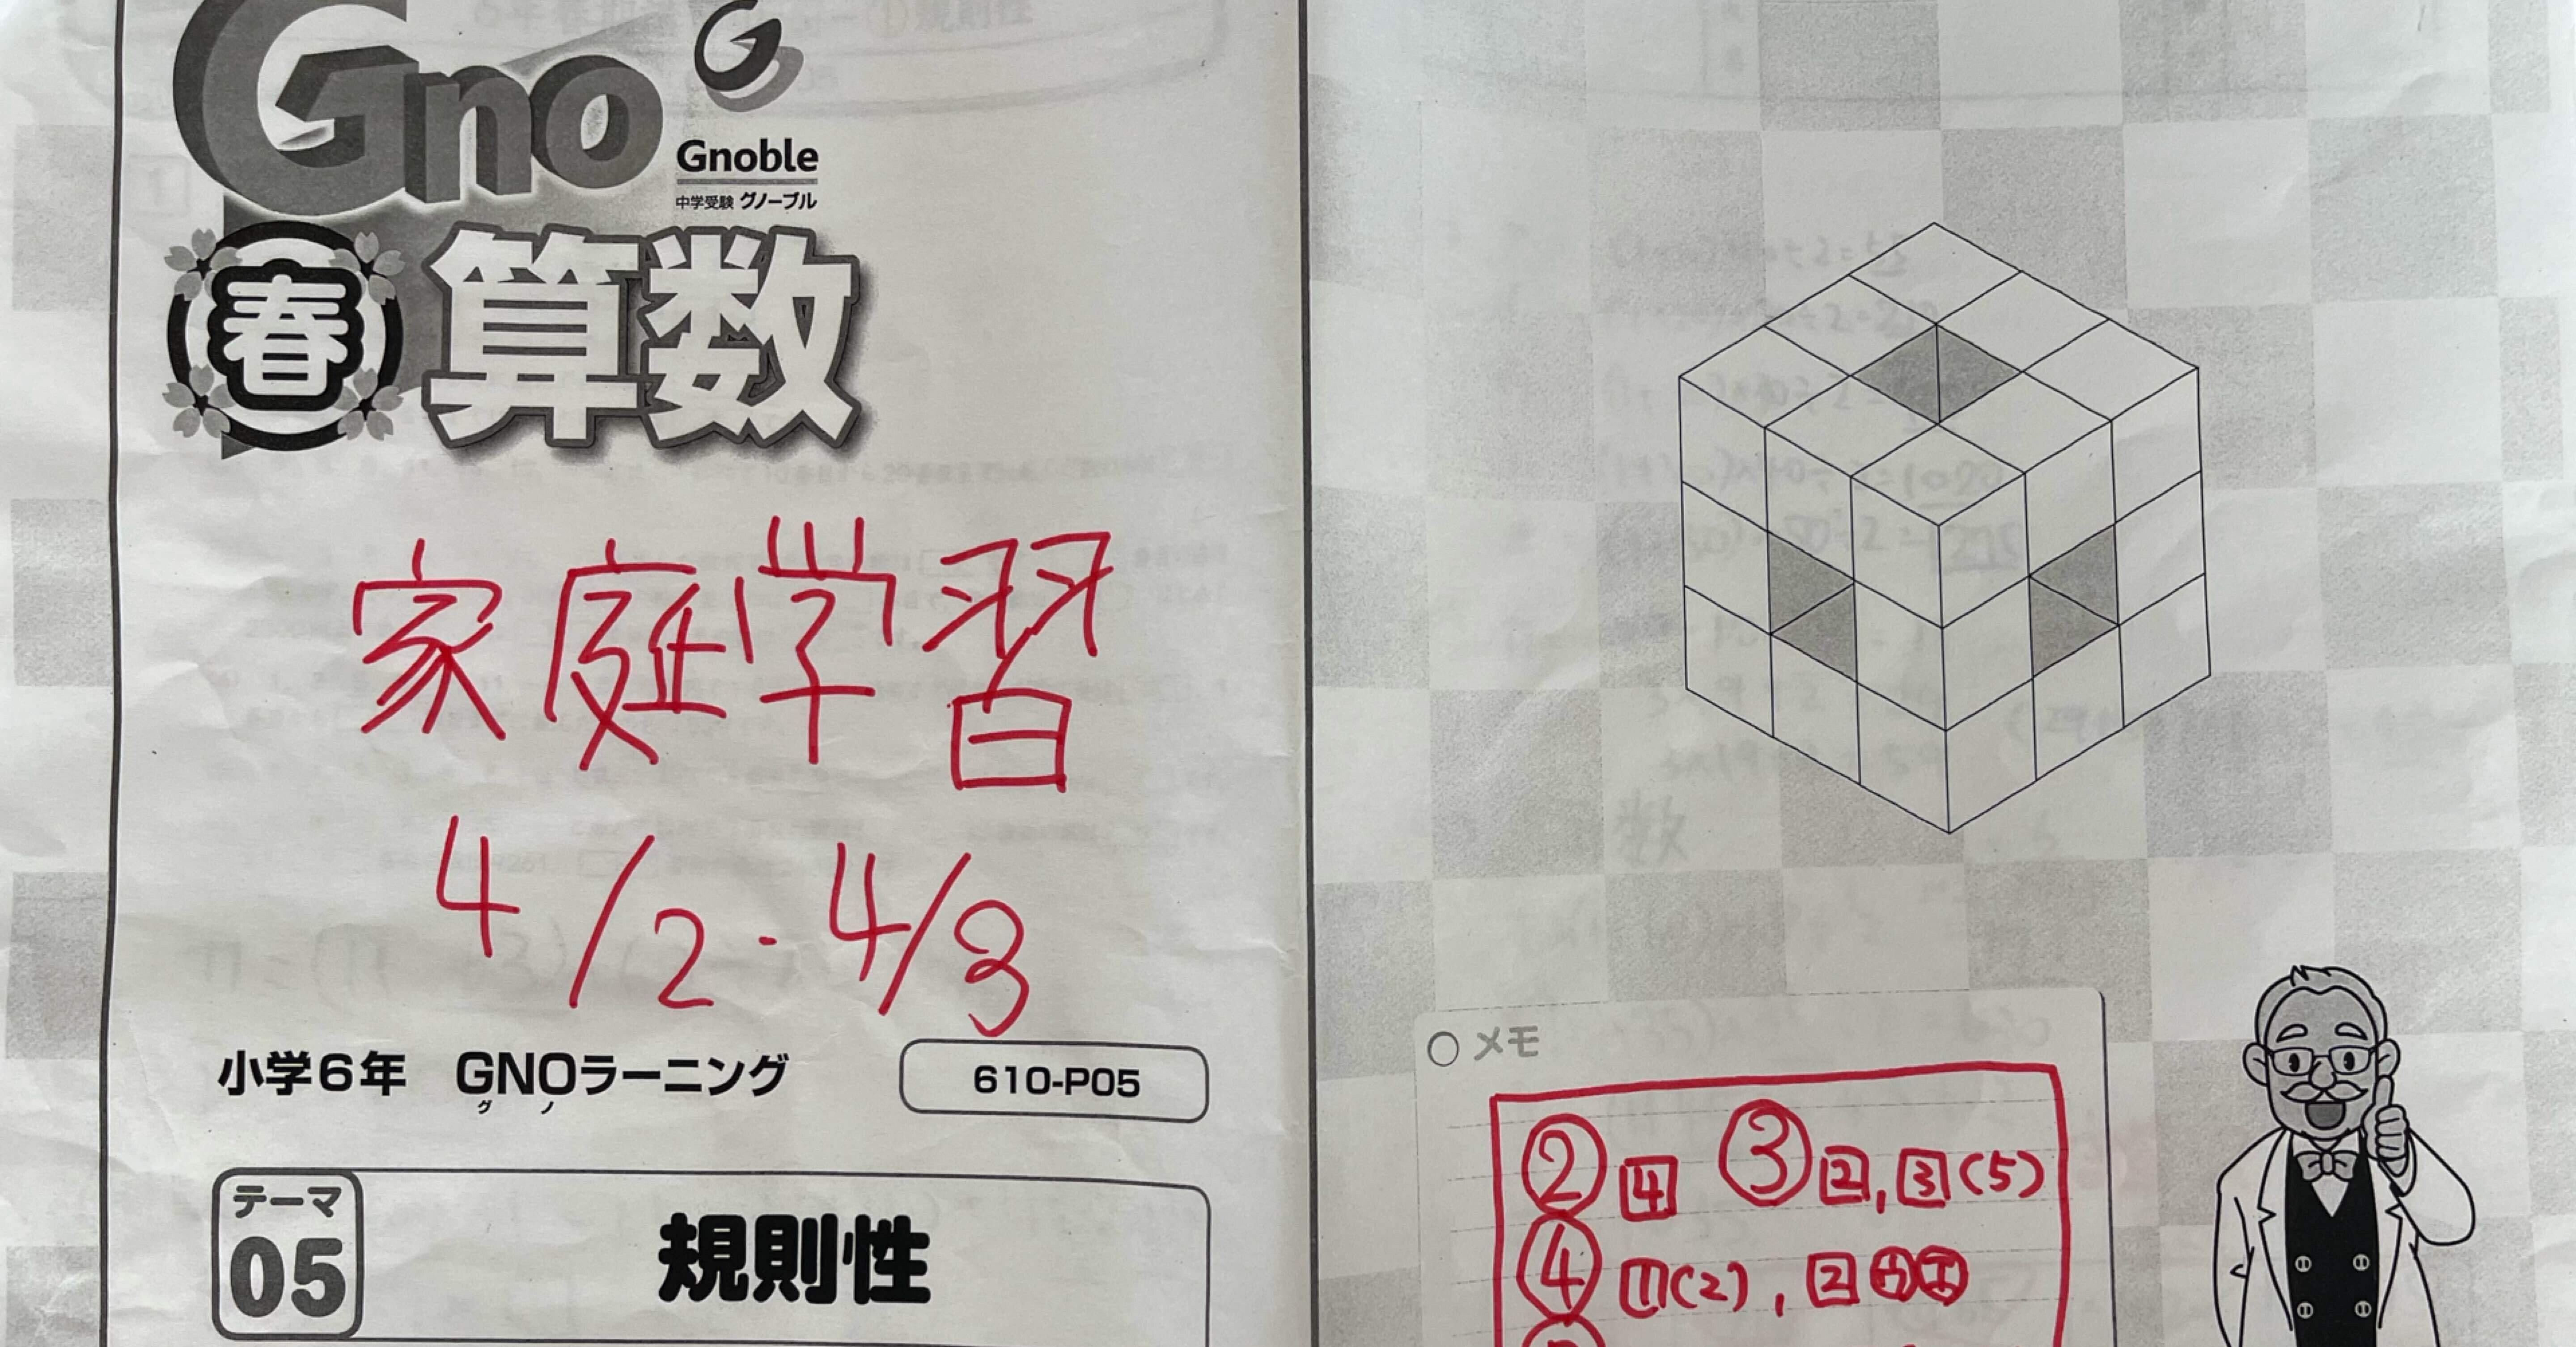 Gno
Gnoble
中学受験 グノーブル
春 算数
家庭学習
4/2・4/3
小学6年 GNOラーニング
グ ノ
610-P05
テーマ
05
規則性
○メモ
② 4 ③ 2, 3 (5)
④ 1 (2), 2 ㋒㋓